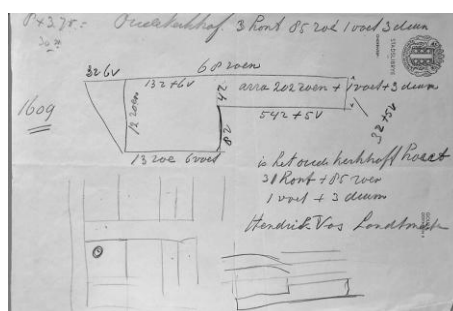 Oude Kerkhof 3 hont 85 roe 1 voet 3 duim
32 6v
68 roen
13 2 + 6v
42
arra 202 roen + 1 voet + 3 duim
12 roen
1609
82
54 2 + 5v
32 + 5v
13 roe 6 voet
is het oude kerkhoff hoect
3 hont + 85 roen
1 voet + 3 duim
Hendrik Vos Landmeter